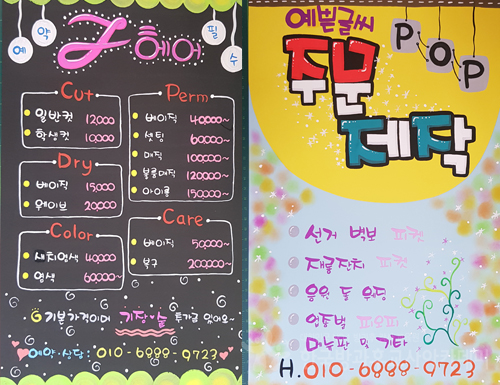 예약
Z헤어
필수
Cut
일반컷 12000
학생컷 10000
Dry
베이직 15000
웨이브 20000
Color
새치염색 40000
염색 60000~
Perm
베이직 40000~
셋팅 60000~
매직 100000~
볼륨매직 120000~
아이롱 150000~
Care
베이직 50000~
복구 200000~
G 기본가격이며 기장·숱 추가로 있어요~
예약·상담: 010-6888-9723
예쁜글씨 POP
주문
제작
선거 벽보 피켓
재롱잔치 피켓
음악 동 운동
업종별 피오피
메뉴판 및 기타
H. 010-6888-9723